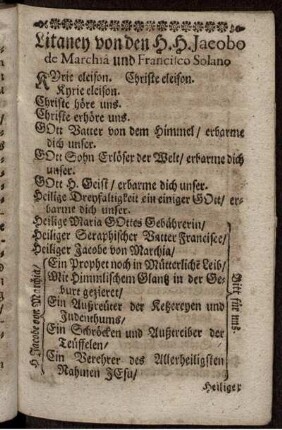 Litaney von den H.H. Jacobo
de Marchia und Francisco Solano
KYrie eleison. Christe eleison.
Kyrie eleison.
Christe höre uns.
Christe erhöre uns.
GOtt Vatter von dem Himmel/ erbarme
dich unser.
GOtt Sohn Erlöser der Welt/ erbarme dich
unser.
GOtt H. Geist/ erbarme dich unser.
Heilige Dreyfaltigkeit ein einiger GOtt/ er-
barme dich unser.
Heilige Maria GOttes Gebährerin/
Heiliger Seraphischer Vatter Francisce/
Heiliger Jacobe von Marchia/
Ein Prophet noch in Mütterlichē Leib/
Mit Himmlischem Glantz in der Ge-
burt gezieret/
Ein Außreüter der Ketzereyen und
Judenthums/
Ein Schröcken und Außtreiber der
Teüffelen/
Ein Verehrer des Allerheiligsten
Nahmen JEsu/
H Jacobe von Marchia/
Bitt für uns.
Heiliger